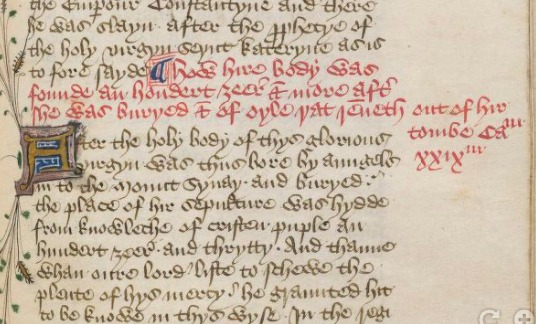 the Emp̄our Constantyne and there
he was slayn after the ꝓphecye of
the holy virgyn seynt kateryne as is
to fore sayde ¶ how hire body was
founde an hondert ȝeer & more aft̄
she was buryed & of oyle þat rēneth out of hir
tombe Caᵐ
xxixᵐ
After the holy body of thys glorious
vyrgyn was thus bore by aungels
in to the mount Synay and buryed
the place of hir sepulture was hydde
from knowleche of cristen puple an
hundert ȝeer and thrytty. And thanne
whan oure lord liste to schewe the
plente of hys mercy he graunted hit
to be knowe in thys wyse. In the reg